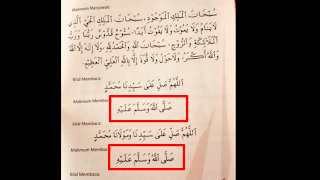 Makmum Menjawab:
سُبْحَانَ الْمَلِكِ الْمَوْجُوْدِ، سُبْحَانَ الْمَلِكِ الْحَيِّ الَّذِي
لَا يَنَامُ وَلَا يَمُوْتُ وَلَا يَفُوْتُ أَبَدًا، سُبُّوْحٌ قُدُّوْسٌ رَبُّنَا وَرَبُّ
الْمَلَائِكَةِ وَالرُّوْحِ، سُبْحَانَ اللهِ وَالْحَمْدُ لِلّٰهِ، وَلَا إِلٰهَ إِلَّا اللهُ
وَاللهُ أَكْبَرُ، وَلَا حَوْلَ وَلَا قُوَّةَ إِلَّا بِاللهِ الْعَلِيِّ الْعَظِيْمِ.
Bilal Membaca:
اَللّٰهُمَّ صَلِّ عَلَى سَيِّدِنَا مُحَمَّدٍ
Makmum Membaca:
صَلَّى اللهُ وَسَلَّمَ عَلَيْهِ
Bilal Membaca:
اَللّٰهُمَّ صَلِّ عَلَى سَيِّدِنَا وَمَوْلَانَا مُحَمَّدٍ
Makmum Membaca:
صَلَّى اللهُ وَسَلَّمَ عَلَيْهِ
Bilal Membaca: